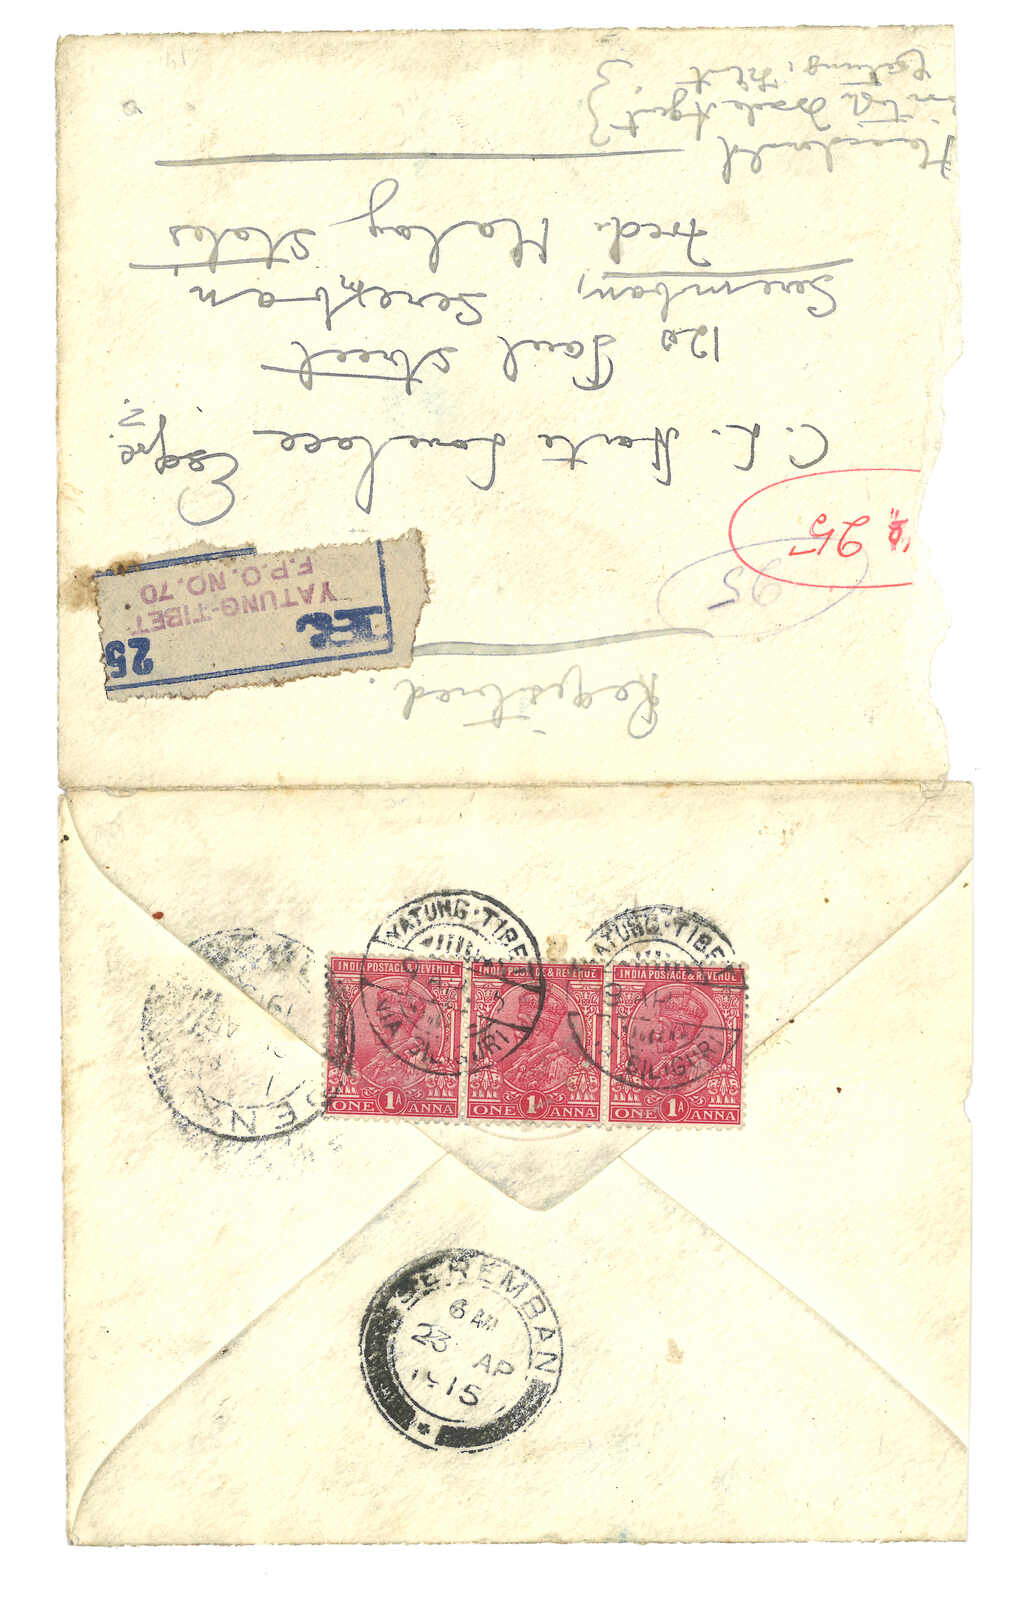 Registered.
R 25
YATUNG-TIBET
F.P.O. NO. 70
95
25
C. L. Harte Lovelace Esqre.
120 Paul Street
Seremban, Seremban
Fred. Malay States
Macdonald,
British Trade Agent }
Yatung, Tibet }
YATUNG·TIBET
VIA SILIGURI
YATUNG·TIBET
SILIGURI
INDIA POSTAGE & REVENUE
ONE 1A ANNA
INDIA POSTAGE & REVENUE
ONE 1A ANNA
INDIA POSTAGE & REVENUE
ONE 1A ANNA
SEREMBAN
6 AM
23 AP
1915